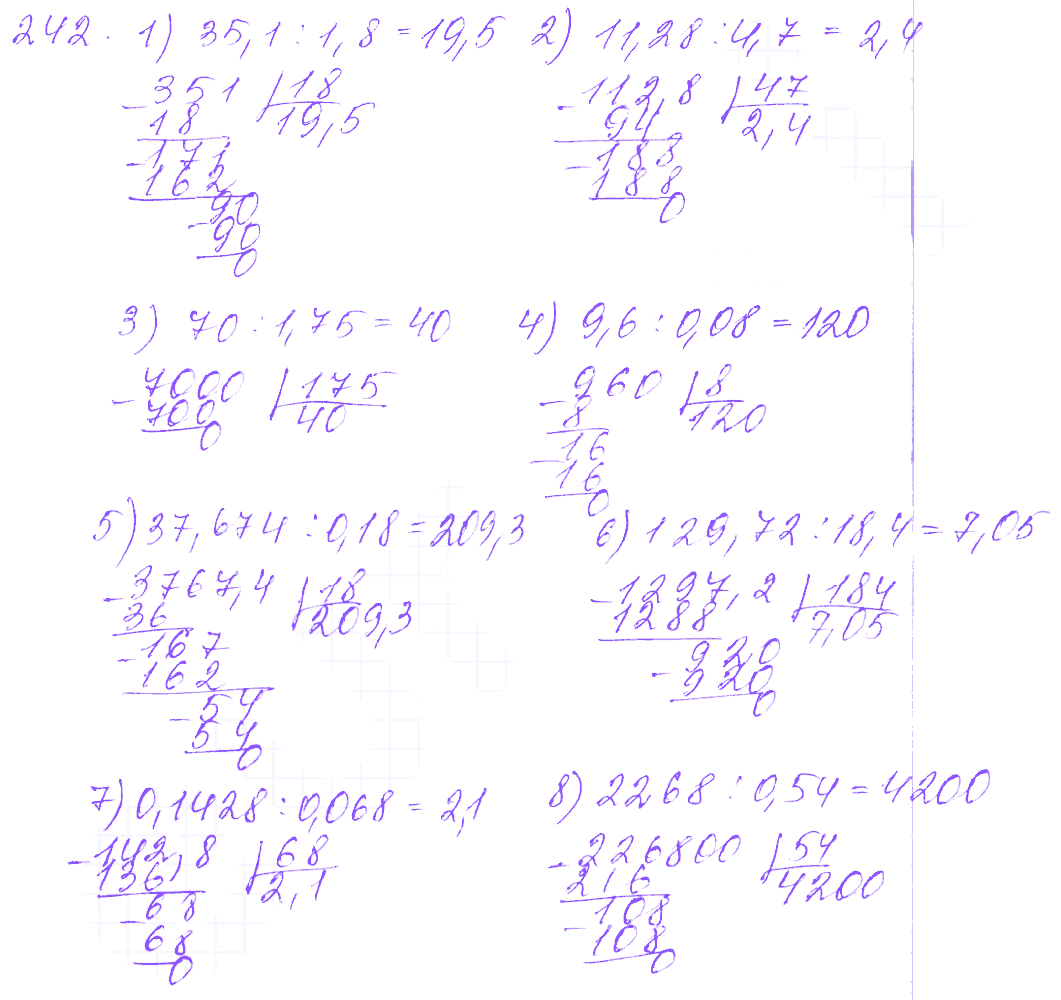 242. 1) 35,1 : 1,8 = 19,5 2) 11,28 : 4,7 = 2,4
-351 | 18 -112,8 | 47
18 19,5 94 2,4
-171 -188
162 188
90 0
-90
0
3) 70 : 1,75 = 40 4) 9,6 : 0,08 = 120
-7000 | 175 -960 | 8
700 40 8 120
0 -16
16
0
5) 37,674 : 0,18 = 209,3 6) 129,72 : 18,4 = 7,05
-3767,4 | 18 -1297,2 | 184
36 209,3 1288 7,05
-167 920
162 -920
-54 0
54
0
7) 0,1428 : 0,068 = 2,1 8) 2268 : 0,54 = 4200
-142,8 | 68 -226800 | 54
136 2,1 216 4200
-68 -108
68 108
0 0